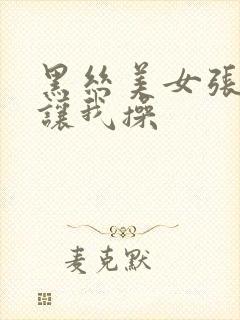 黑絲美女張
讓我操
麦克默